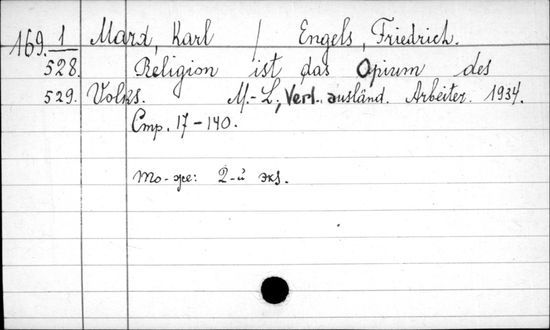 169. 1 Marx, Karl / Engels, Friedrich.
528. Religion ist das Opium des
529. Volks. M.-L., Verl. ausländ. Arbeiter. 1934.
Стр. 17-140.
То-же: 2-й экз.